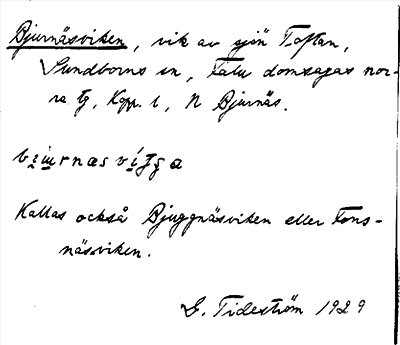 Bjurnäsviken, vik av sjön Toftan,
Sundborns sn, Falu domsagas nor-
ra tg, Kopp. l, N Bjurnäs.
Kallas också Bjuggnäsviken eller Tons-
näsviken.
G. Tideström 1929